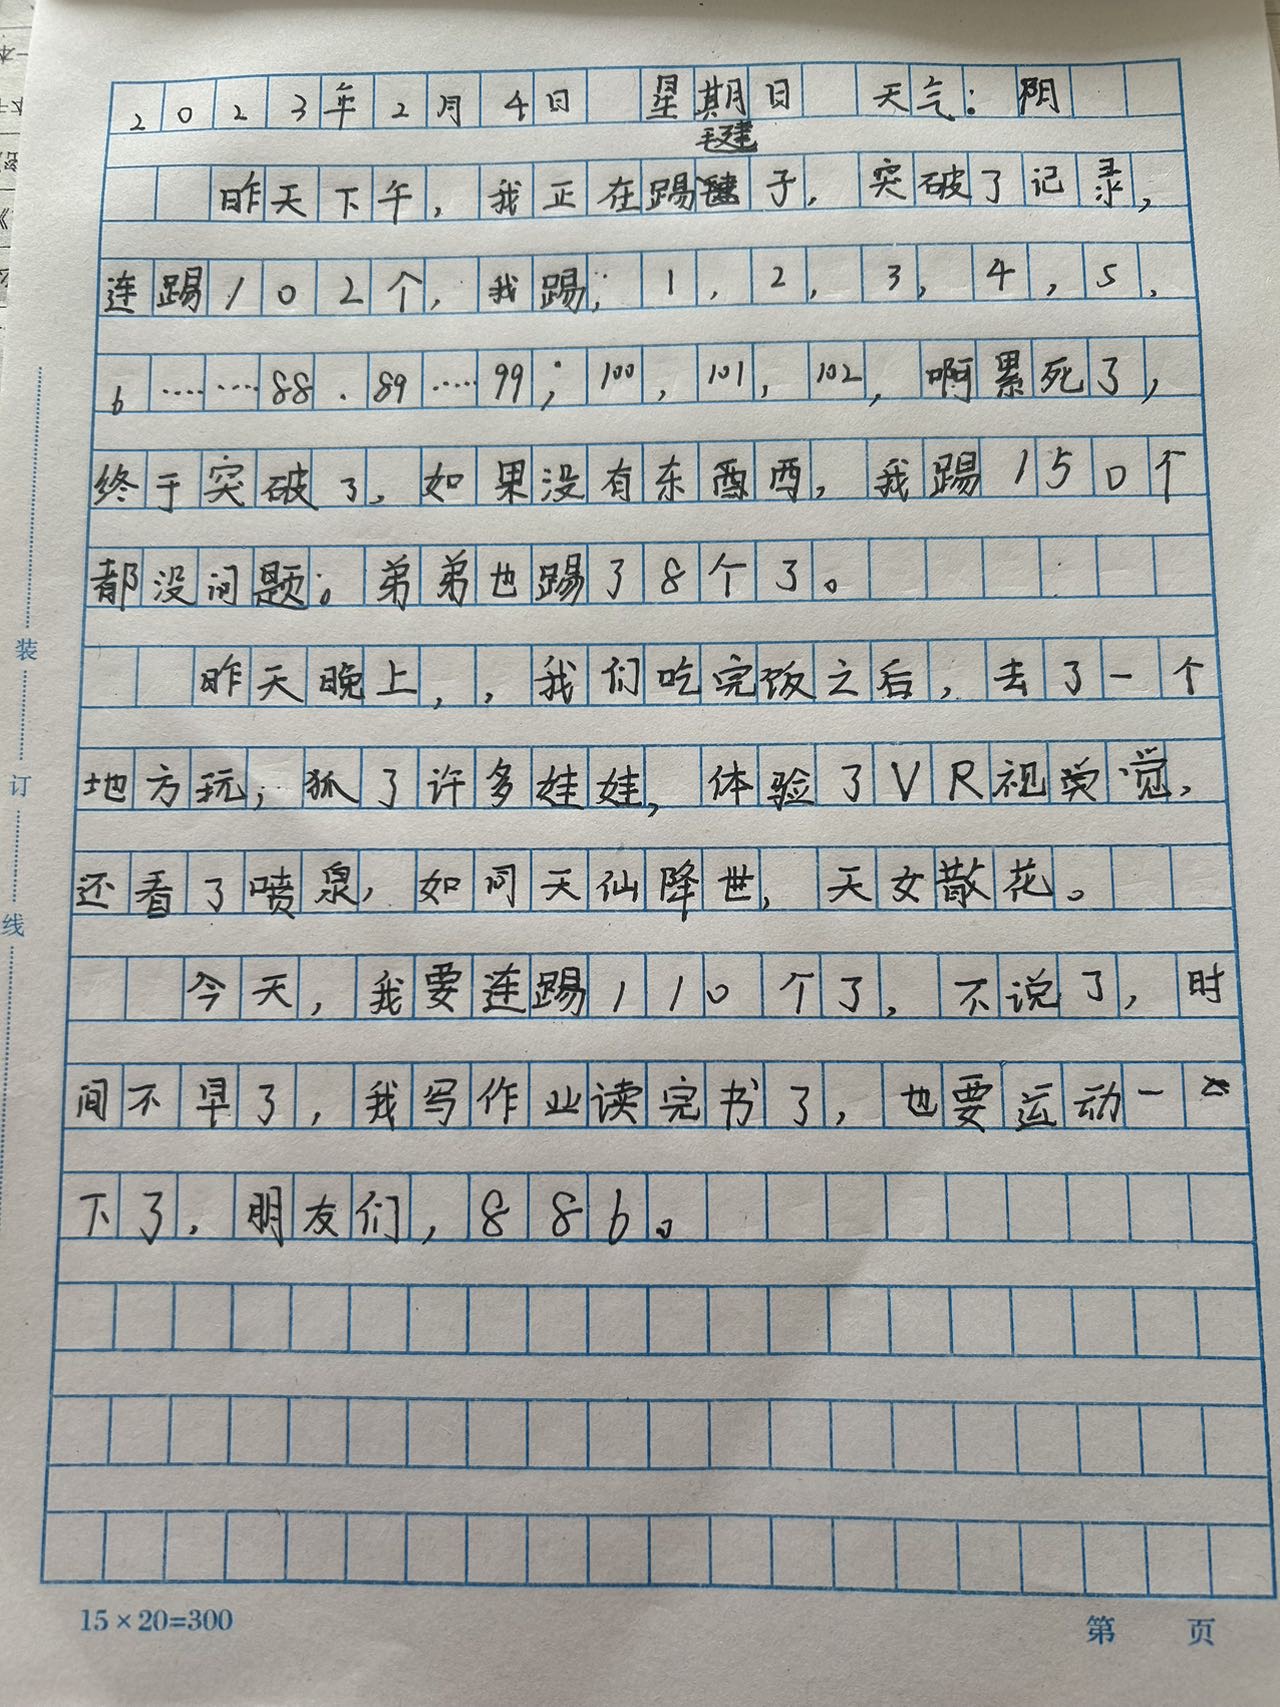 2023年2月4日 星期日 天气：阴
毽
昨天下午，我正在踢毽子，突破了记录，
连踢102个，我踢；1，2，3，4，5，
6……88．89……99；100，101，102，啊累死了，
终于突破了，如果没有东西，我踢150个
都没问题。弟弟也踢了8个了。
昨天晚上，，我们吃完饭之后，去了一个
地方玩，抓了许多娃娃，体验了VR视觉，
还看了喷泉，如同天仙降世，天女散花。
今天，我要连踢110个了，不说了，时
间不早了，我写作业读完书了，也要运动一
下了，朋友们，886。
装
订
线
15×20=300
第 页